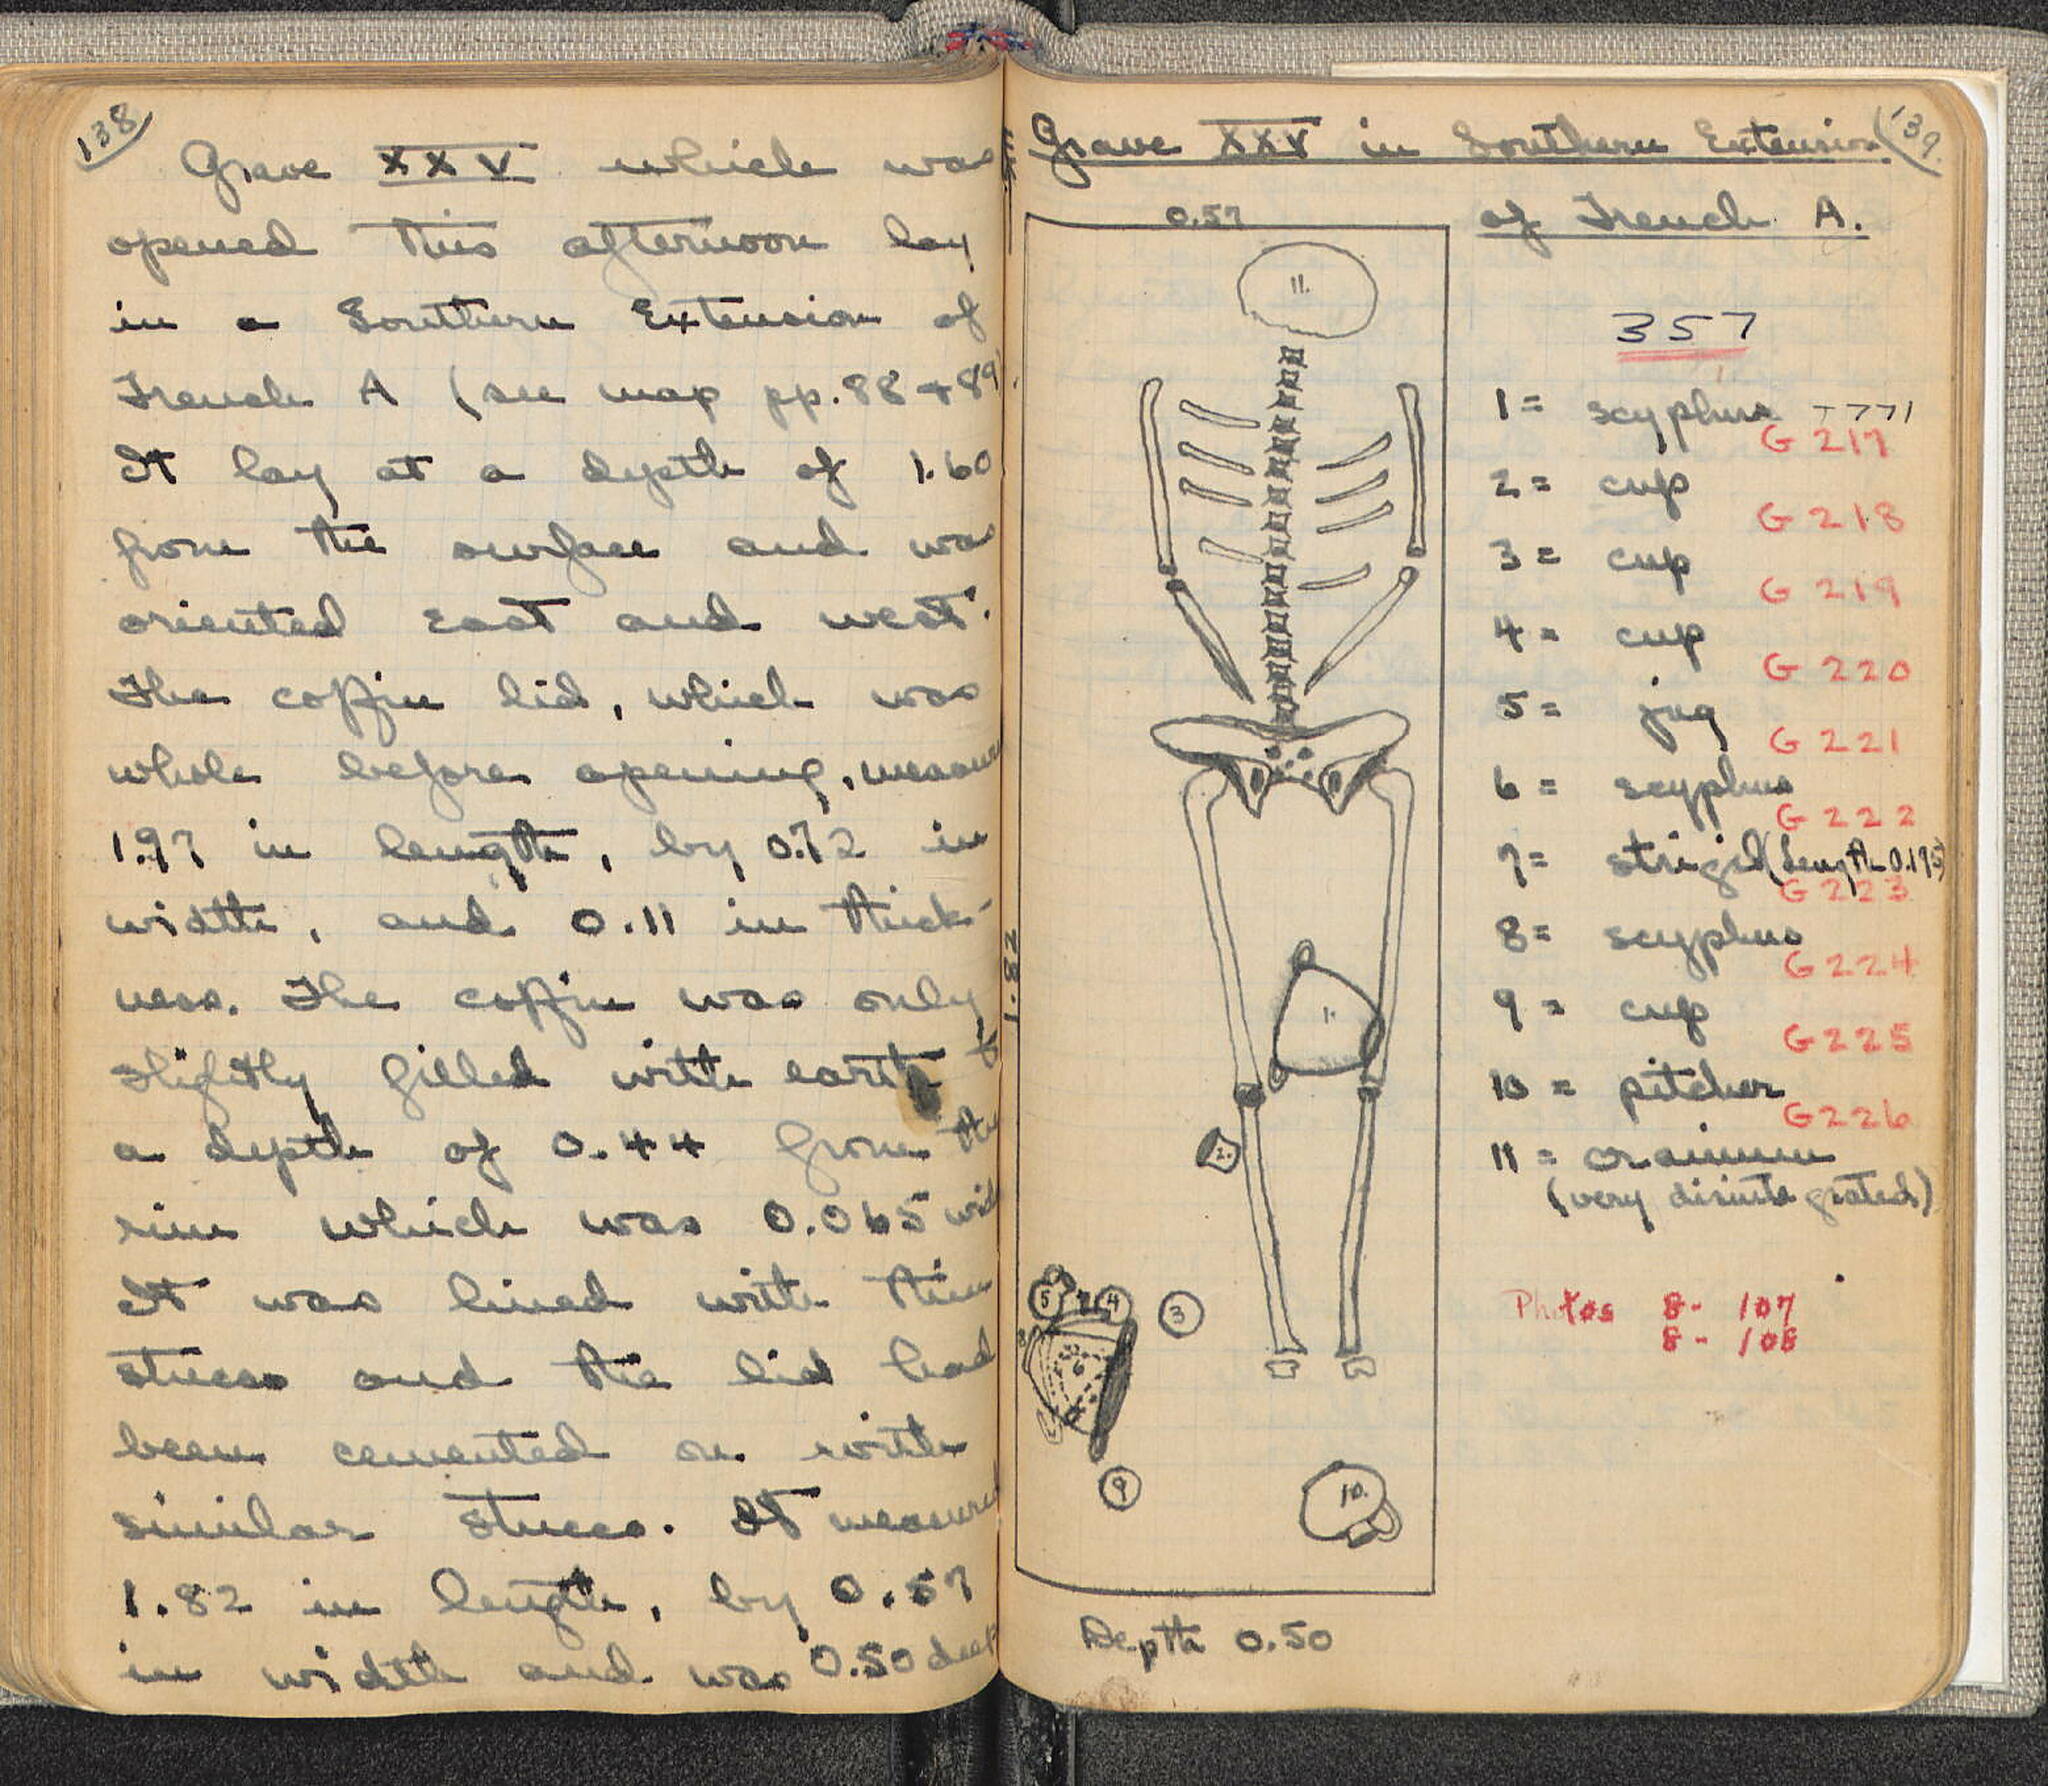 138
Grave XXV which was
opened this afternoon lay
in a Southern Extension of
Trench A (see map pp. 88 + 89)
It lay at a depth of 1.60
from the surface and was
oriented east and west.
The coffin lid, which was
whole before opening, measured
1.97 in length, by 0.72 in
width, and 0.11 in thick-
ness. The coffin was only
slightly filled with earth to
a depth of 0.44 from the
rim which was 0.065 wide
It was lined with thin
stucco and the lid had
been cemented on with
similar stucco. It measured
1.82 in length, by 0.57
in width and was 0.50 deep
139.
Grave XXV in Southern Extension
of Trench A.
0.57
1.82
11.
1.
2.
5
7
4
3
8
6
9
10.
Depth 0.50
357
1 = scyphus T771
G 217
2 = cup
G 218
3 = cup
G 219
4 = cup
G 220
5 = jug
G 221
6 = scyphus
G 222
7 = strigil (length 0.195)
G 223
8 = scyphus
G 224
9 = cup
G 225
10 = pitcher
G 226
11 = cranium
(very disintegrated)
Photos 8 - 107
8 - 108